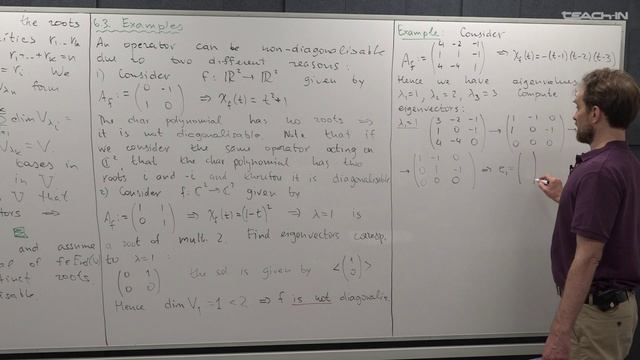 the roots
r₁..rₖ
r₁+..+rₖ = n
= rᵢ. We
form
dim V_λᵢ =
V_λᵢ = V.
bases in
in V
and assume
of f∈End(V)
roots
6.3. Examples
An operator can be non-diagonalisable
due to two different reasons:
1) Consider f: ℝ² → ℝ² given by
A_f := (0 -1; 1 0) ⇒ χ_f(t) = t²+1
The char polynomial has no roots ⇒
it is not diagonalisable. Note that if
we consider the same operator acting on
ℂ² that the polynomial has two
roots i and -i and therefore it is diagonalisable
2) Consider f: ℂ² → ℂ² given by
A_f := (1 1; 0 1) ⇒ χ_f(t) = (1-t)² ⇒ λ = 1 is
a root of mult. 2. Find eigenvectors corresp.
to λ = 1:
(0 1; 0 0) the sol is given by <(1; 0)>
Hence dim V₁ = 1 < 2 ⇒ f is not diagonalis.
Example: Consider
A_f = (4 -2 -1; 1 1 -1; 4 -4 1) ⇒ χ_f(t) = -(t-1)(t-2)(t-3)
Hence we have eigenvalues
λ₁=1, λ₂=2, λ₃=3 Compute
eigenvectors:
λ=1 (3 -2 -1; 1 0 -1; 4 -4 0) → (1 -1 0; 1 0 -1; 0 0 0) →
→ (1 -1 0; 0 1 -1; 0 0 0) ⇒ e₁ = ( 1
TEACH-IN